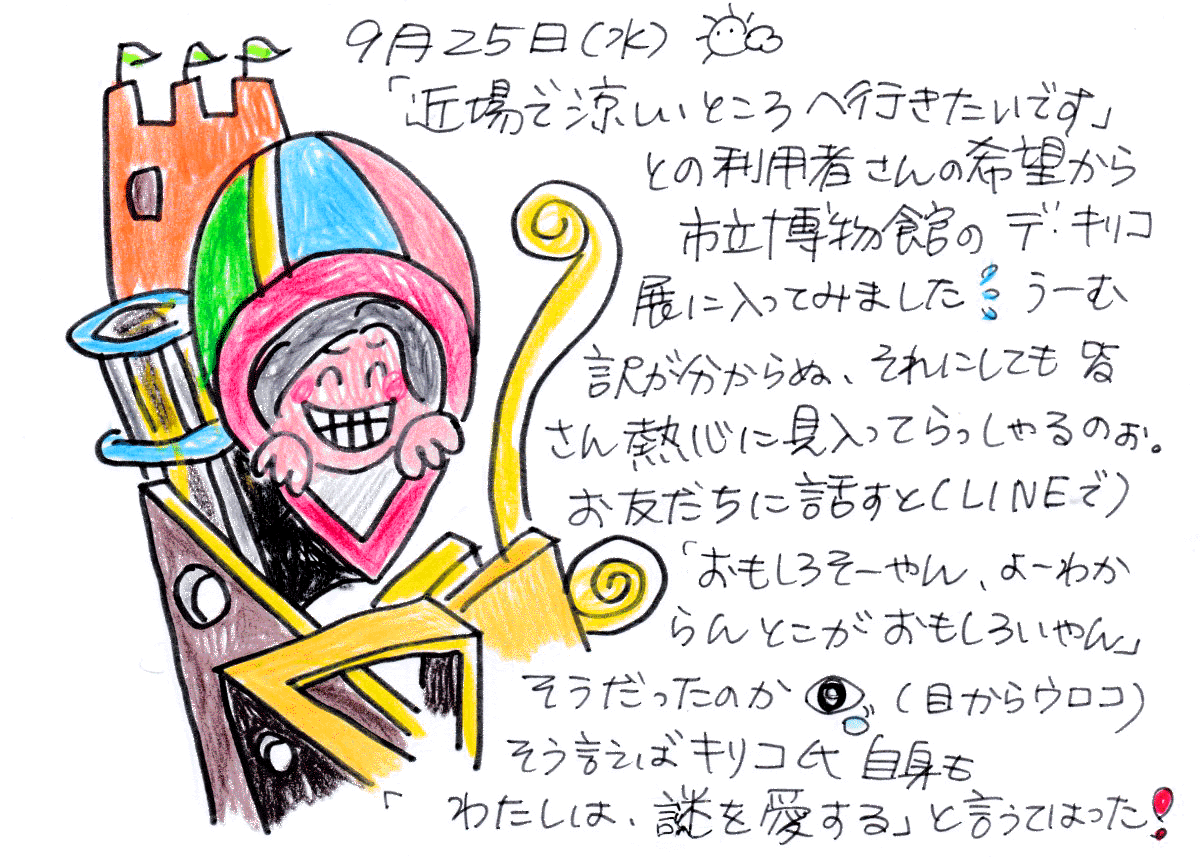 9月25日(水)
「近場で涼しいところへ行きたいです」
との利用者さんの希望から
市立博物館のデ・キリコ
展に入ってみました うーむ
訳が分からぬ、それにしても皆
さん熱心に見入ってらっしゃるのぉ。
お友だちに話すと(LINEで)
「おもしろそーやん、よーわか
らんとこがおもしろいやん」
そうだったのか(目からウロコ)
そう言えばキリコ氏自身も
「わたしは、謎を愛する」と言うてはった!